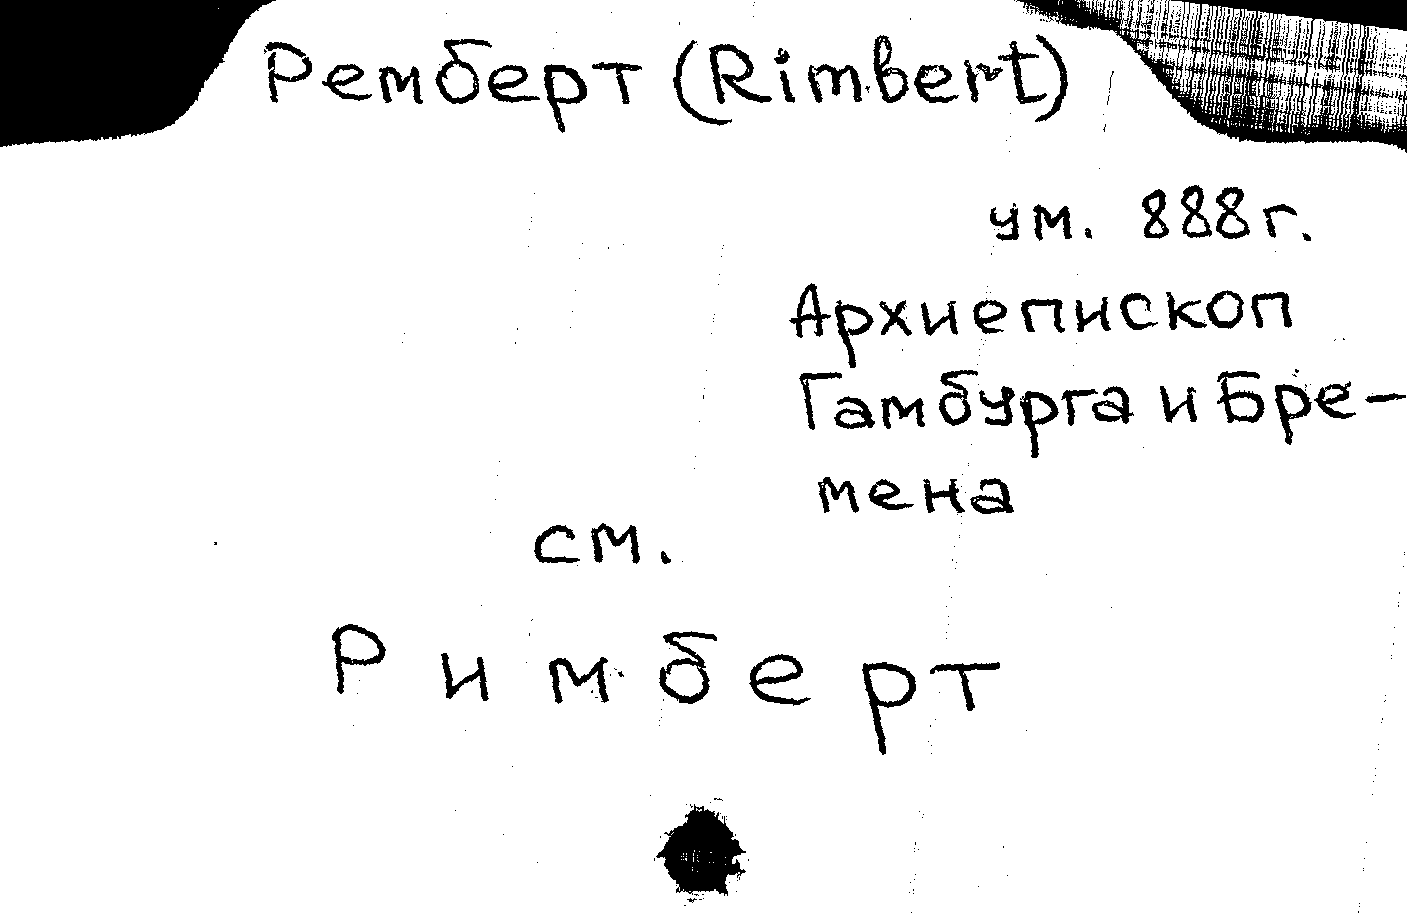 Ремберт (Rimbert)
ум. 888 г.
Архиепископ
Гамбурга и Бре-
мена
см.
Римберт